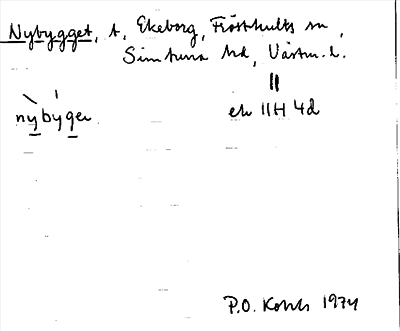 Nybygget, t, Ekeborg, Frösthults sn,
Simtuna hd, Västm. l.
nỳbýgen
ek 11H 4d
P.O. 1974